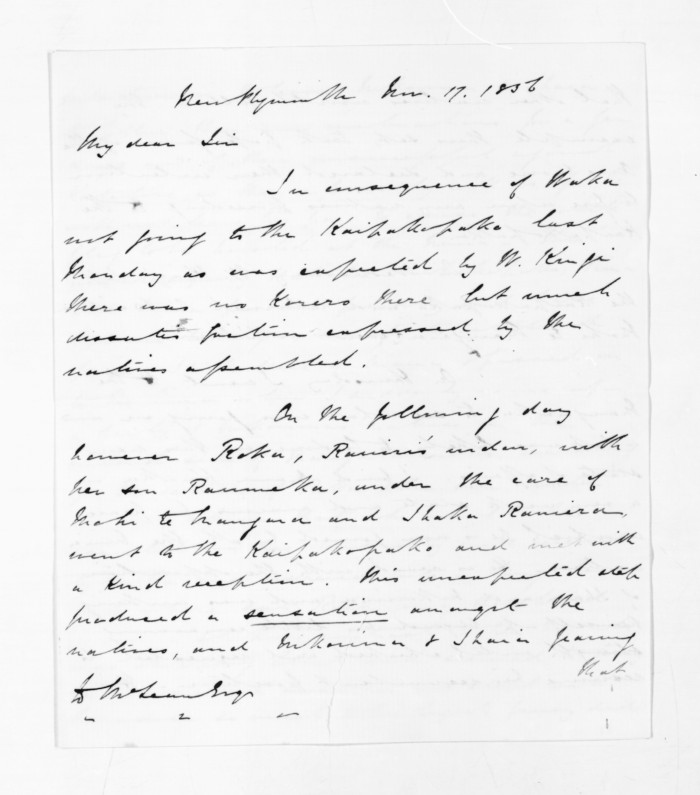 New Plymouth Nov. 17. 1856
My dear Sir
In consequence of Waka
not going to the Kaipakopako last
Monday as was expected by W. Kingi
there was no Korero there but much
dissatisfaction expressed by the
natives assembled.
On the following day
however Roka, Rawiri's widow, with
her son Raumoka, under the care of
Mahi te and Ihaka Raniera,
went to the Kaipakopako and met with
a kind reception. This unexpected step
produced a sensation amongst the
natives, and & Ihaia fearing
that
D McLean Esqr
1